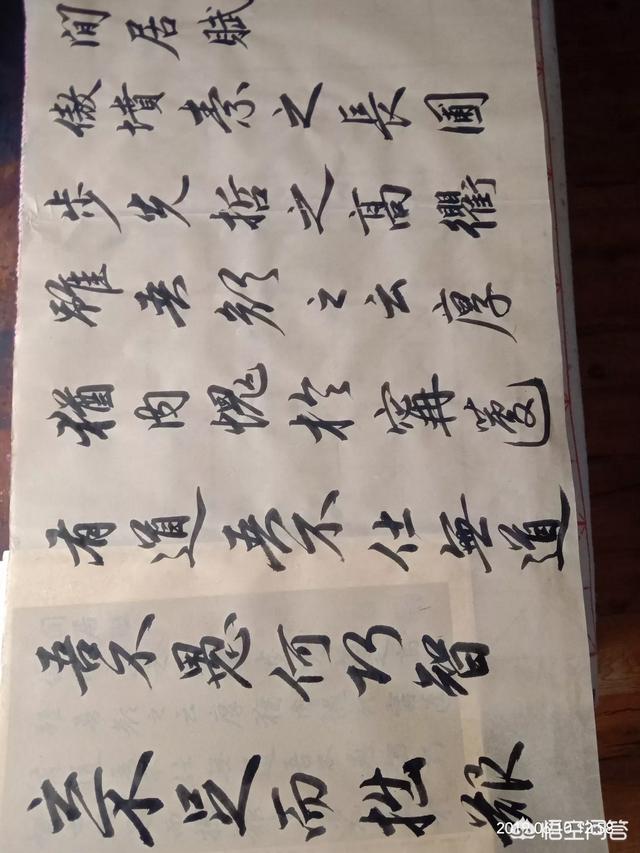 閒居賦
傲墳素之長圃
步先哲之高衢
雖吾顏之云厚
猶内愧於甯蘧
有道吾不仕無道
吾不愚何巧智
之不足而拙艱
悟空问答